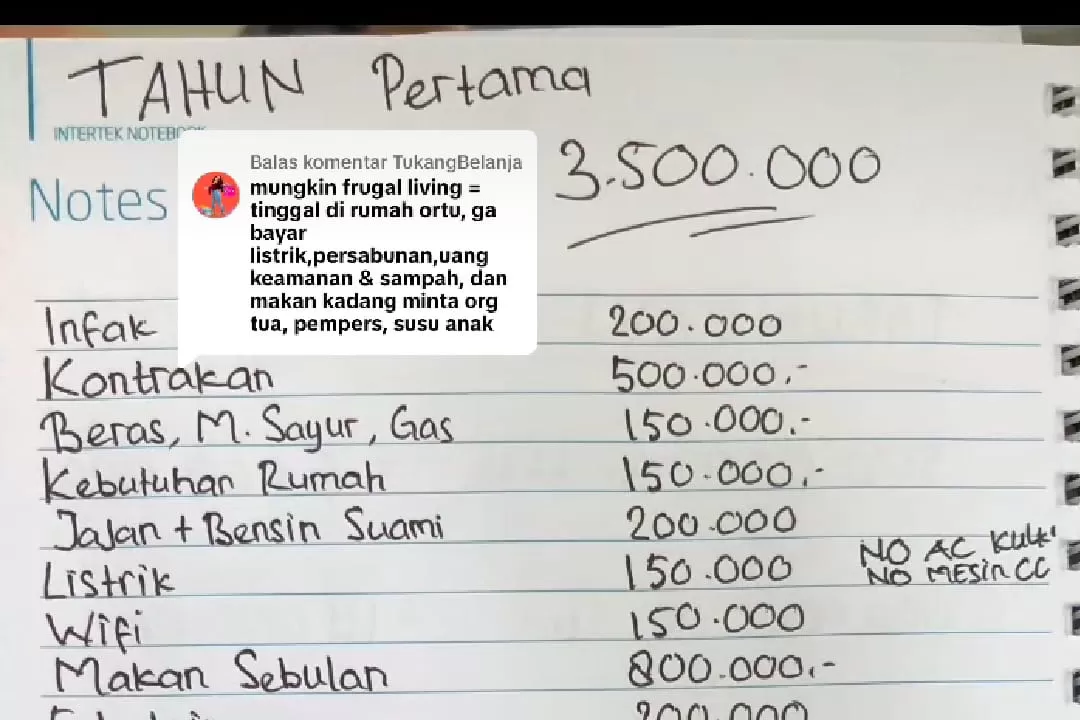 TAHUN Pertama
INTERTEK NOTEBOOK
Notes
3.500.000
Balas komentar TukangBelanja
mungkin frugal living =
tinggal di rumah ortu, ga
bayar
listrik,persabunan,uang
keamanan & sampah, dan
makan kadang minta org
tua, pempers, susu anak
Infak 200.000
Kontrakan 500.000,-
Beras, M. Sayur, Gas 150.000,-
Kebutuhan Rumah 150.000,-
Jajan + Bensin Suami 200.000
Listrik 150.000
NO AC
NO MESIN CC
Wifi 150.000
Makan Sebulan 800.000,-
200.000